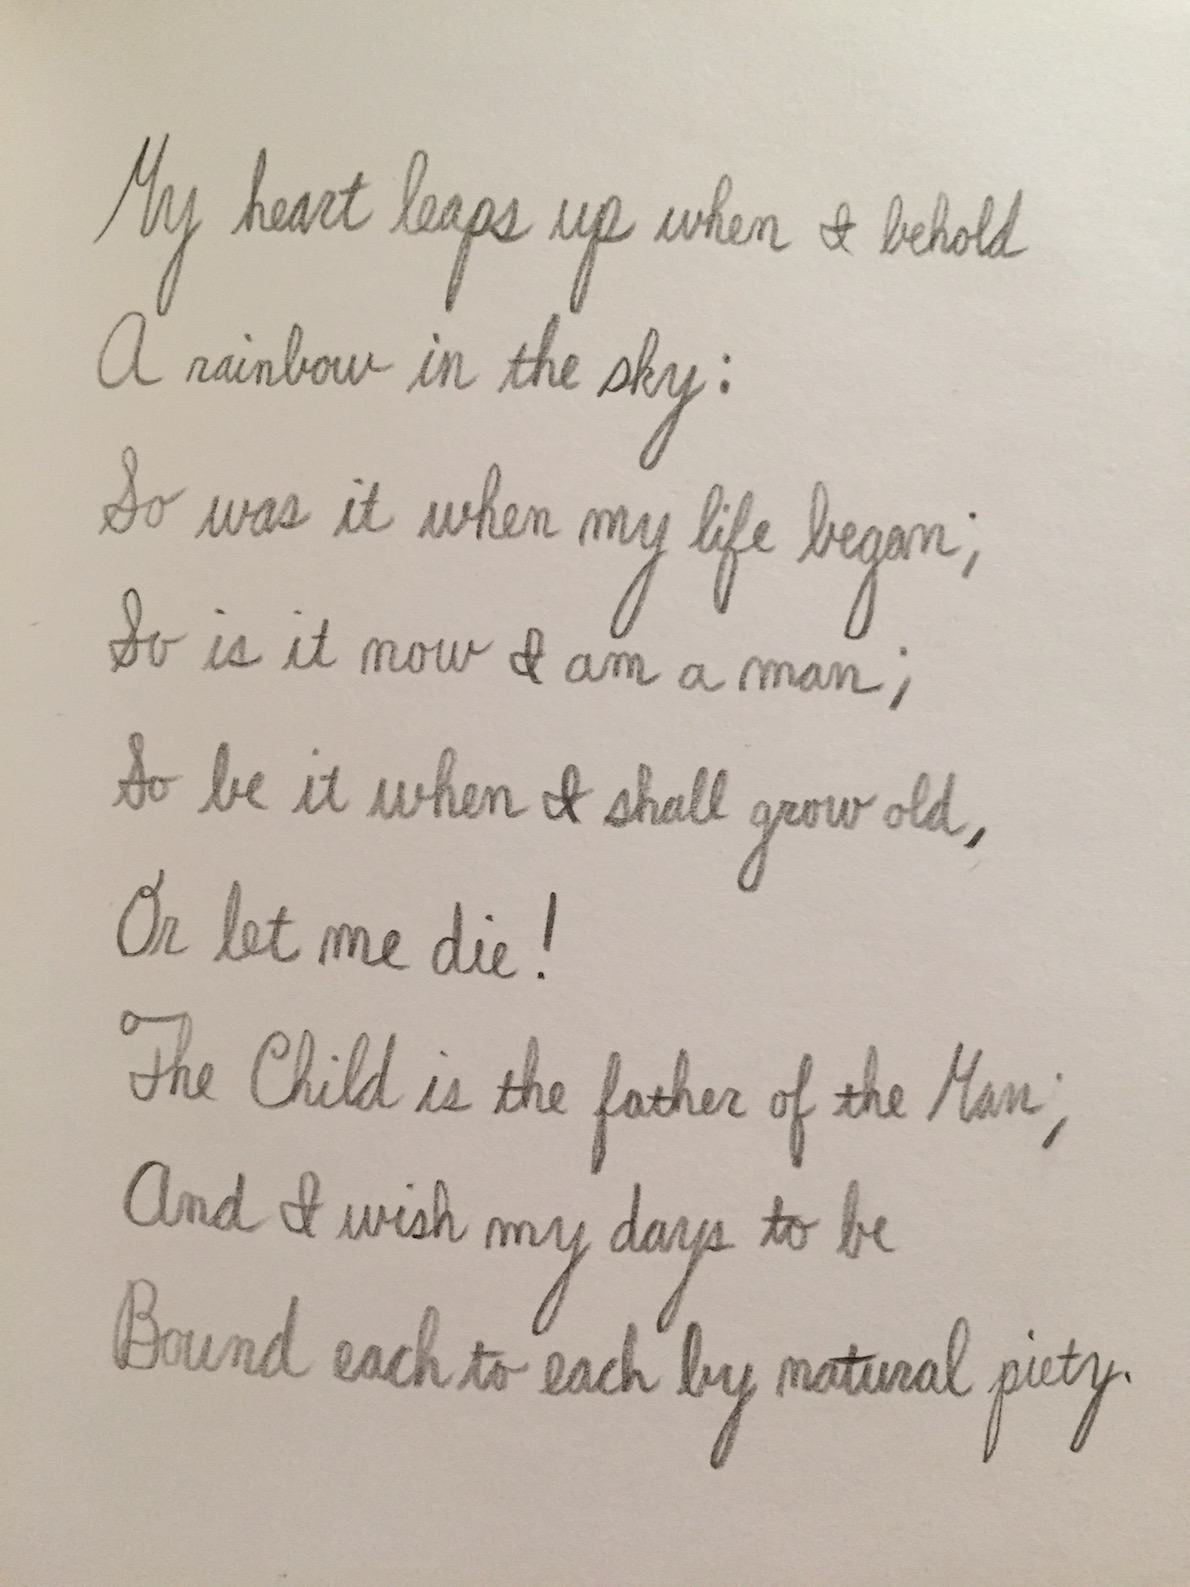 My heart leaps up when I behold
A rainbow in the sky:
So was it when my life began;
So is it now I am a man;
So be it when I shall grow old,
Or let me die!
The Child is the father of the Man;
And I wish my days to be
Bound each to each by natural piety.